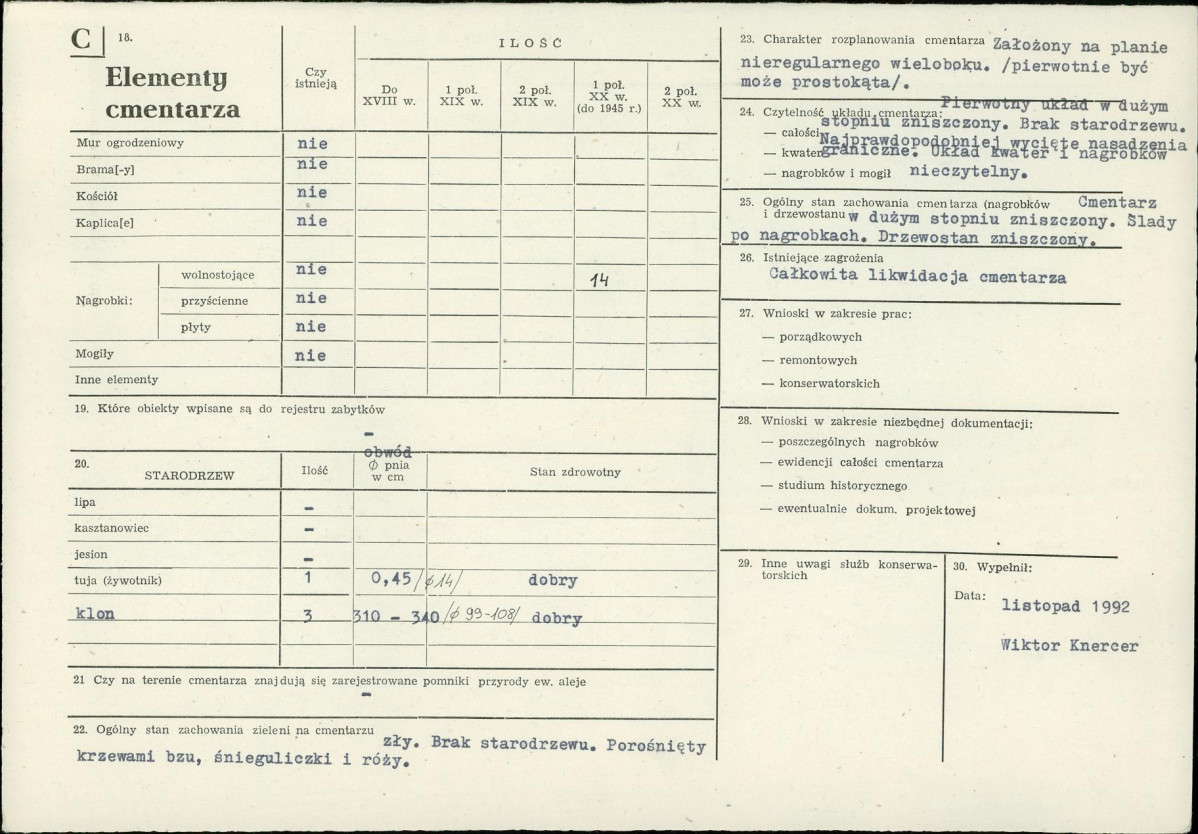 C 18.
Elementy
cmentarza
Czy
istnieją
ILOŚĆ
Do
XVIII w.
1 poł.
XIX w.
2 poł.
XIX w.
1 poł.
XX w.
(do 1945 r.)
2 poł.
XX w.
Mur ogrodzeniowy nie
Brama[-y] nie
Kościół nie
Kaplica[e] nie
Nagrobki:
wolnostojące nie 14
przyścienne nie
płyty nie
Mogiły nie
Inne elementy
19. Które obiekty wpisane są do rejestru zabytków
–
20.
STARODRZEW
Ilość
obwód
∅ pnia
w cm
Stan zdrowotny
lipa –
kasztanowiec –
jesion –
tuja (żywotnik) 1 0,45 /∅ 14/ dobry
klon 3 310 – 340 /∅ 99-108/ dobry
21 Czy na terenie cmentarza znajdują się zarejestrowane pomniki przyrody ew. aleje
–
22. Ogólny stan zachowania zieleni na cmentarzu zły. Brak starodrzewu. Porośnięty
krzewami bzu, śnieguliczki i róży.
23. Charakter rozplanowania cmentarza Założony na planie
nieregularnego wieloboku. /pierwotnie być
może prostokąta/.
24. Czytelność układu cmentarza: Pierwotny układ w dużym
stopniu zniszczony. Brak starodrzewu.
— całości Najprawdopodobniej wycięte nasadzenia
— kwater graniczne. Układ kwater i nagrobków
— nagrobków i mogił nieczytelny.
25. Ogólny stan zachowania cmentarza (nagrobków Cmentarz
i drzewostanu w dużym stopniu zniszczony. Slady
po nagrobkach. Drzewostan zniszczony.
26. Istniejące zagrożenia
Całkowita likwidacja cmentarza
27. Wnioski w zakresie prac:
— porządkowych
— remontowych
— konserwatorskich
28. Wnioski w zakresie niezbędnej dokumentacji:
— poszczególnych nagrobków
— ewidencji całości cmentarza
— studium historycznego
— ewentualnie dokum. projektowej
29. Inne uwagi służb konserwa-
torskich
30. Wypełnił:
Data: listopad 1992
Wiktor Knercer